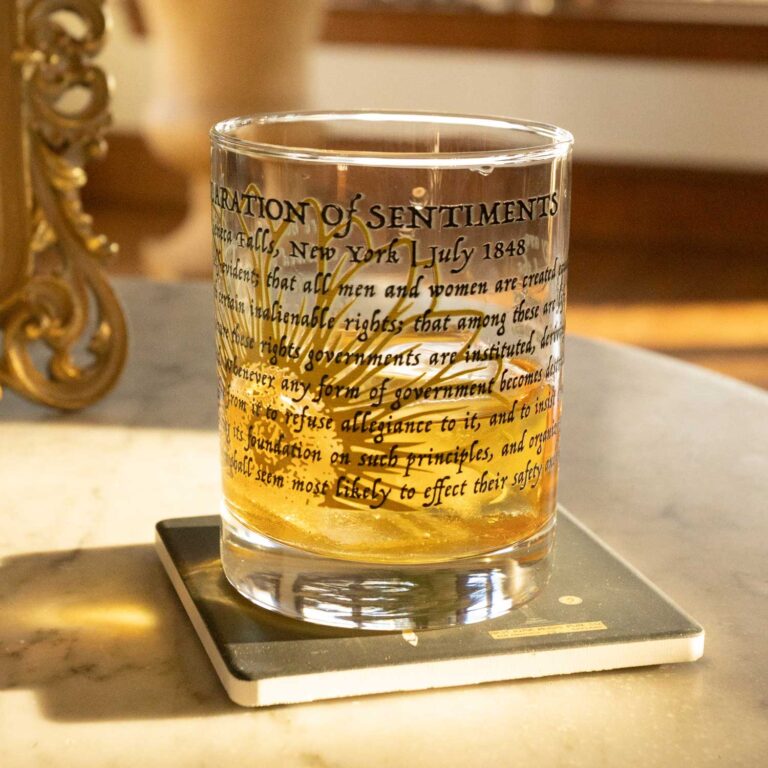 ARATION of SENTIMENTS
Falls, New York | July 1848
evident; that all men and women are created
certain inalienable rights; that among these are
these rights governments are instituted,
whenever any form of government becomes
from it to refuse allegiance to it, and to insist
its foundation on such principles, and
shall seem most likely to effect their safety